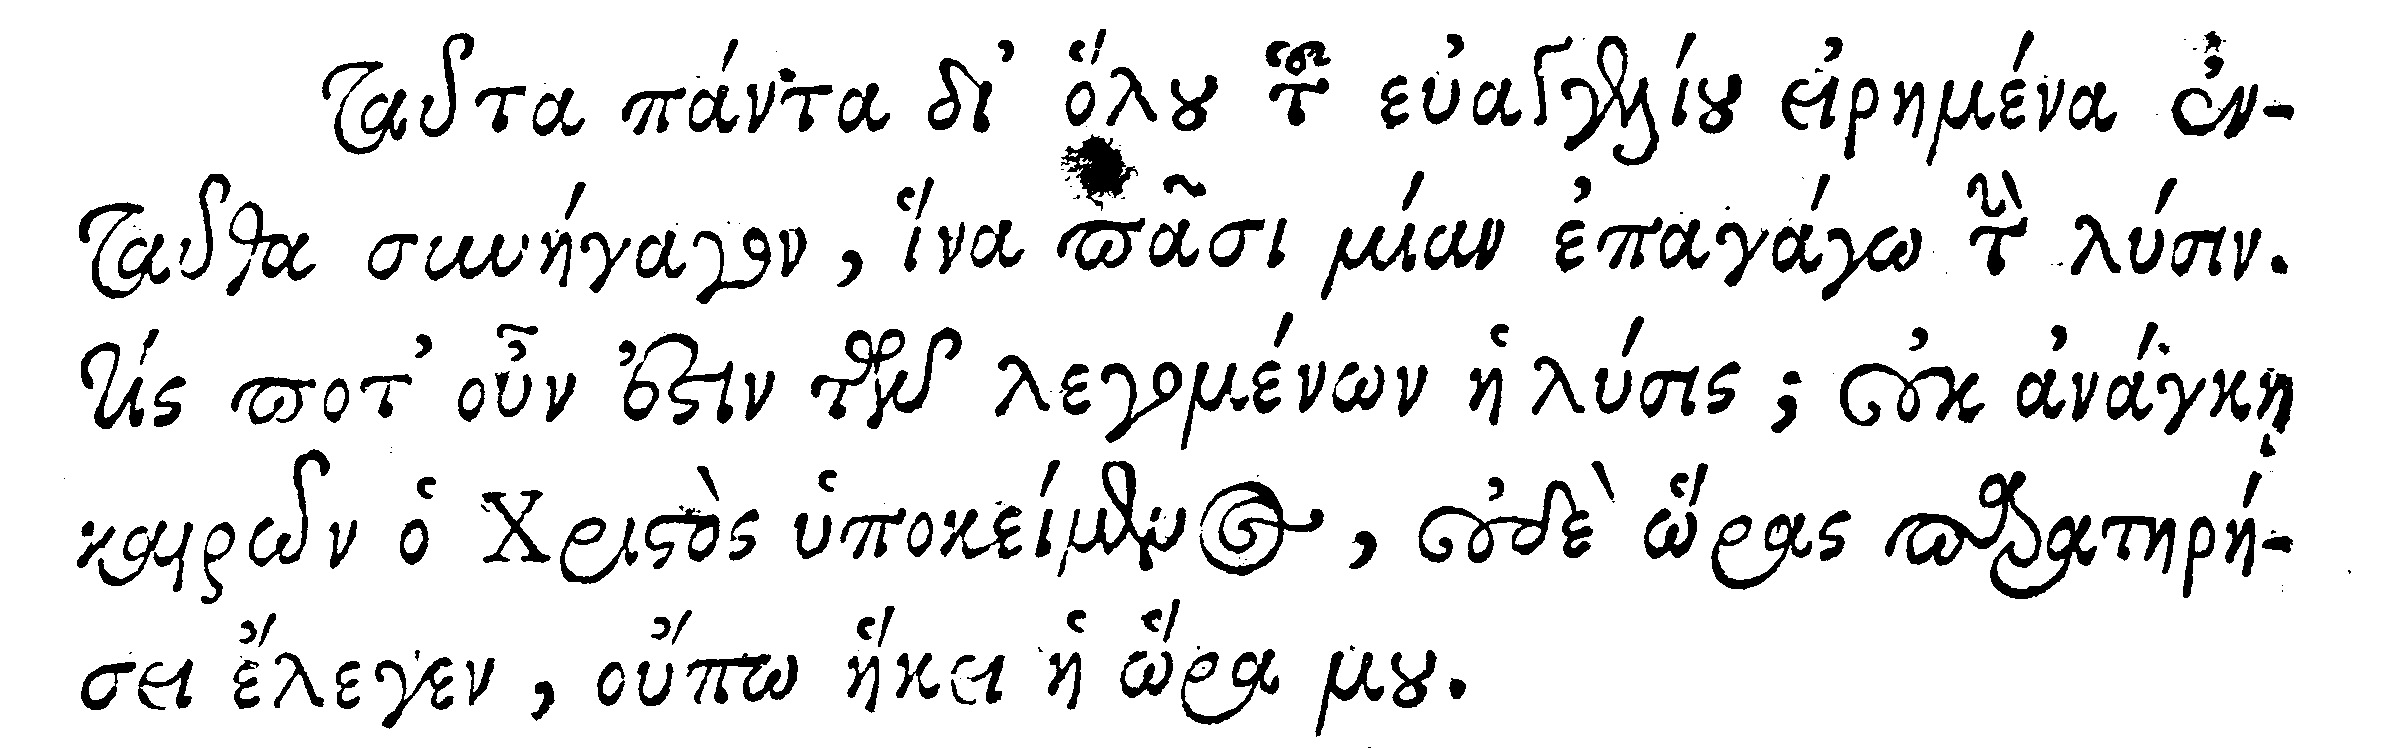 Ταῦτα πάντα δι᾽ ὅλου τοῦ εὐαγγελίου εἰρημένα ἐν-
ταῦθα συνήγαγον, ἵνα πᾶσι μίαν ἐπαγάγω τὴν λύσιν.
τίς ποτ᾽ οὖν ἐστιν τῶν λεγομένων ἡ λύσις; οὐκ ἀνάγκῃ
καιρῶν ὁ Χριστὸς ὑποκείμενος, οὐδὲ ὥρας παρατηρή-
σει ἔλεγεν, οὔπω ἥκει ἡ ὥρα μου.